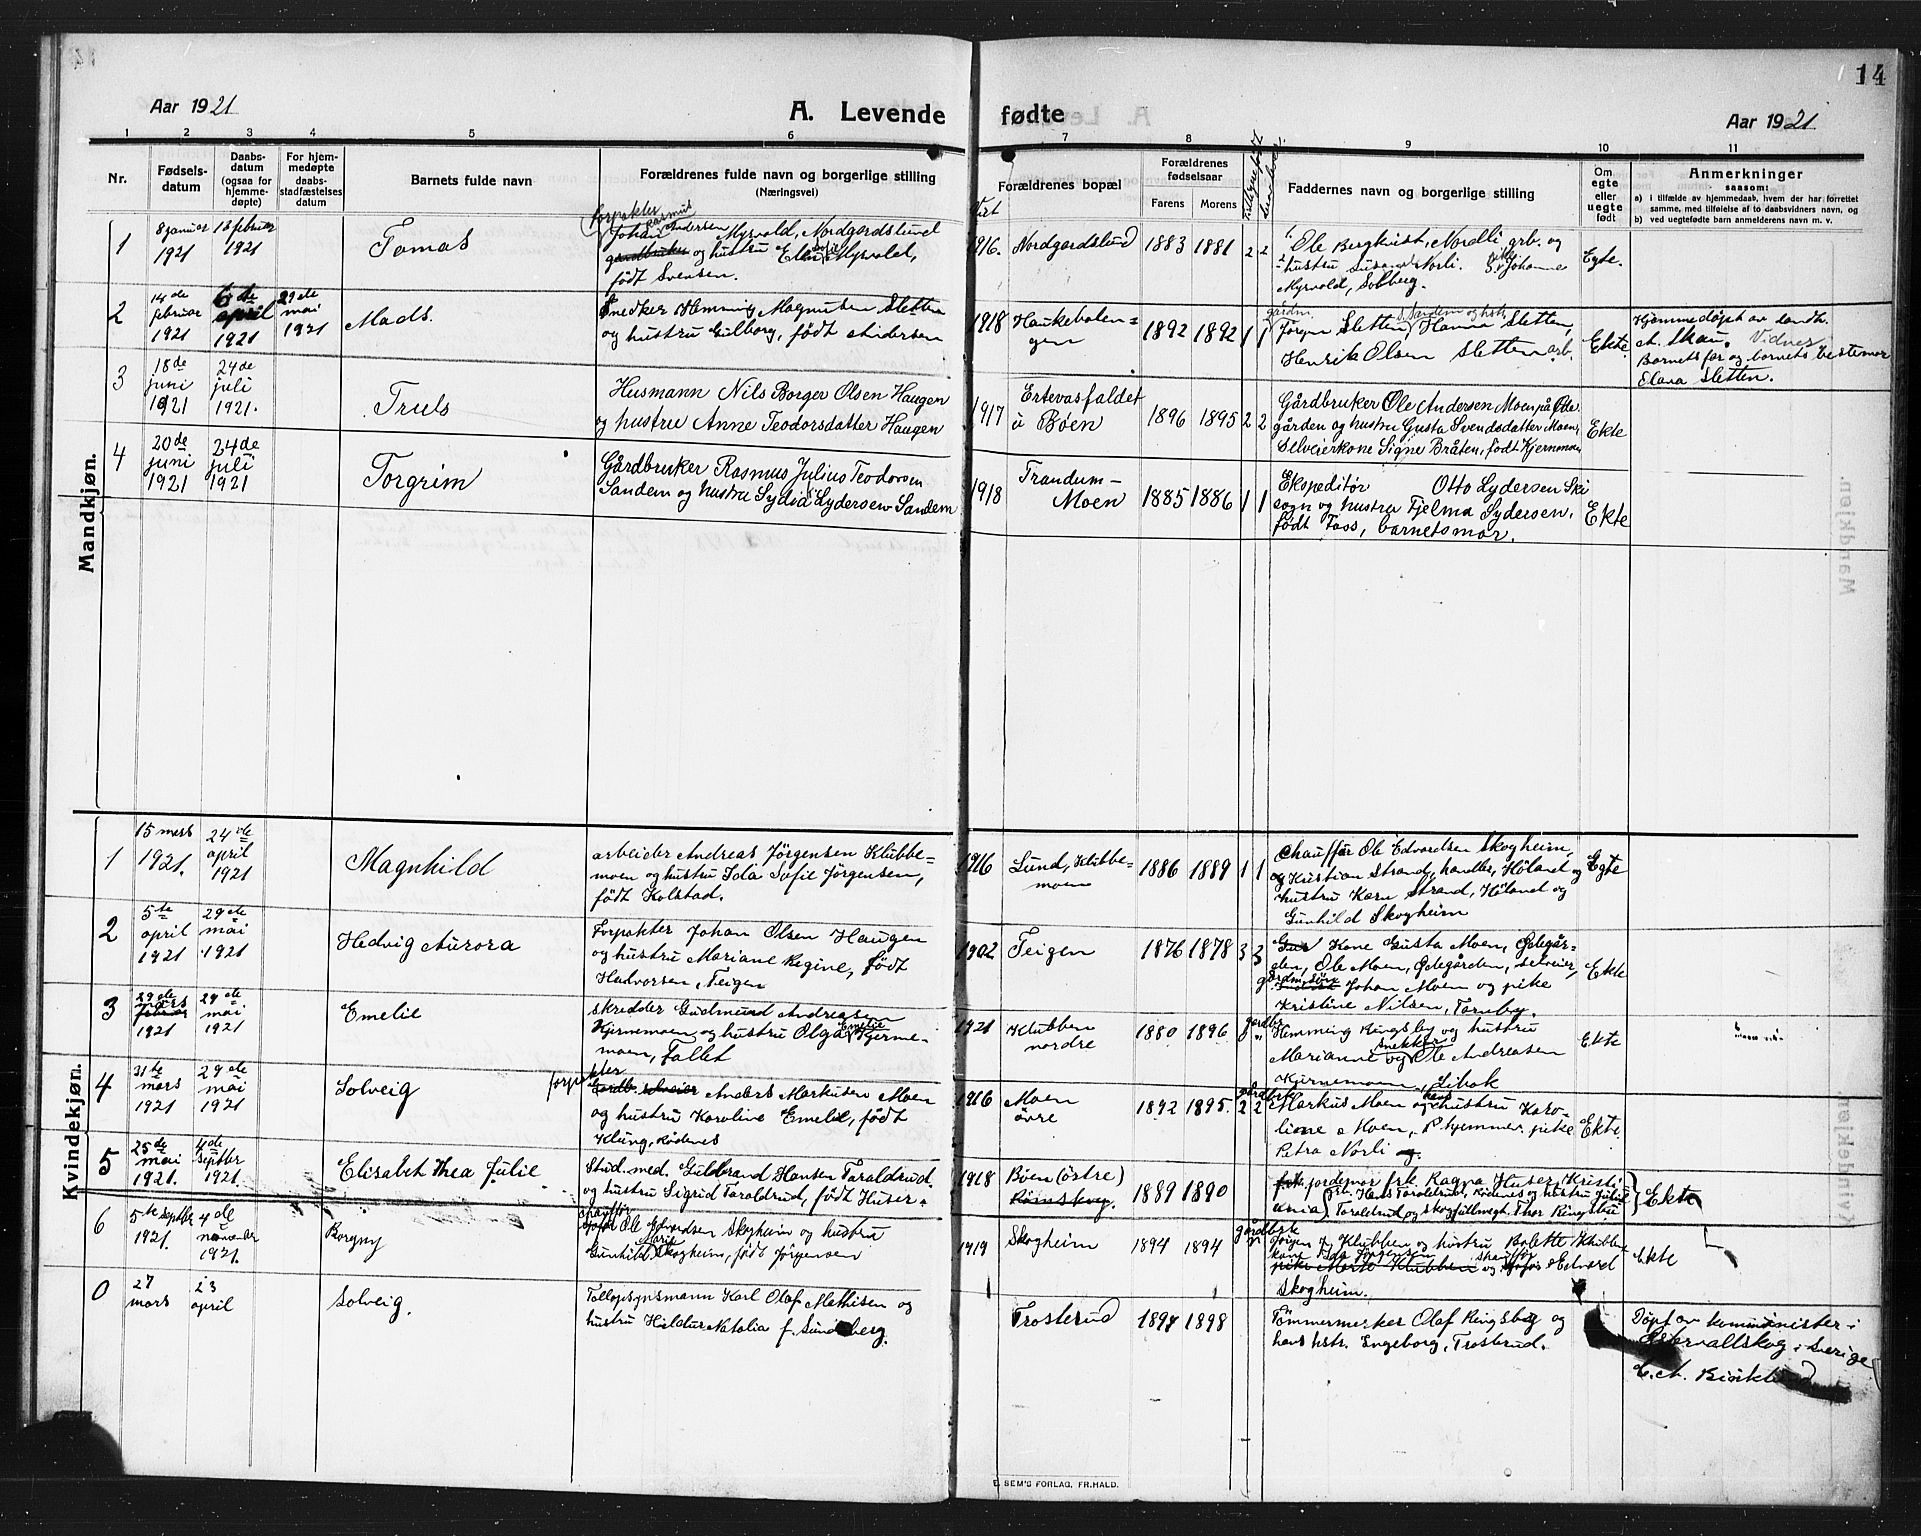 14
Aar 1921
A. Levende fødte
Aar 1921
1 2 3 4 5 6 7 8 9 10 11
Nr.
Fødsels-
datum
Daabs-
datum
(ogsaa for
hjemme-
døpte)
For hjem-
medøpte
daabs-
stadfæstelses
datum
Barnets fulde navn
Forældrenes fulde navn og borgerlige stilling
(Næringsvei)
Forældrenes bopæl
Forældrenes
fødselsaar
Farens Morens
Faddernes navn og borgerlige stilling
Om
egte
eller
uegte
født
Anmerkninger
saasom:
a) i tilfælde av hjemmedaab, hvem der har forrettet
samme, med tilføielse af to daabsvidners navn, og
b) ved uegtefødte barn anmelderens navn m. v.
Viet
Mandkjøn.
1
8 januar
1921
13 februar
1921
Tomas
forpakter
Rasmus
Johan Andersen Myrvold, Nordgardslund
gardbruker og hustru Ellen Myrvold,
født Svensen.
1916. Nordgardslund 1883 1881 2 2
Ole Bergkvist, Nordli, grb. og
hustru Susanna Norli. Johanne
Myrvold, Solberg.
Egte.
2
14 de
februar
1921
6 te
april
1921
29 de
mai
1921
Mads.
Snedker Hemming Magnusen Sletten
og hustru Gilborg, født Andersen
1918 Haukebølen-
gen
1892 1892 1 1
gårdm. Sandem og hstr.
Jørgen Sletten, Hanna Sletten,
Henrik Olsen Sletten arb.
Ekte.
Hjemmedøpt av landh.
A. Skau. Vidner
Barnets far og barnets bestemor
Elava Sletten.
3
18 de
juni
1921
24 de
juli
1921.
Truls
Husmann Nils Borger Olsen Haugen
og hustru Anne Teodorsdatter Haugen
1917 Ertevasfaldet
u Bøen
1896 1895 2 2
Gårdbruker Ole Andersen Moen på Øde
gården og hustru Gusta Svendsdatter Moen,
Selveierkone Signe Bråten, født Kjernmoen
Ekte
4
20 de
juni
1921
24 de
juli
1921
Torgrim
Gårdbruker Rasmus Julius Teodorsen
Sandem og hustru Lydia Lydersen Sandem
1918 Trandum-
Moen
1885 1886 1 1
Ekspeditør Otto Lydersen Ski
sogn og hustru Tjelma Lydersen,
født Foss, barnetsmor.
Ekte
Kvindekjøn.
1
15 mars
1921.
24 de
april
1921
Magnhild
arbeider Andreas Jørgensen Klubbe-
moen og hustru Ida Sofie Jørgensen,
født Kolstad.
1916 Lund, Klubbe-
moen
1886 1889 1 1
Chauffør Ole Edvardsen Skogheim,
og Kristian Strand, handler, Høland og
hustru Karn Strand, Høland og
Gunhild Skogheim
Egte
2
5 te
april
1921
29 de
mai
1921
Hedvig Aurora
Forpakter Johan Olsen Haugen
og hustru Mariane Regine, født
Halvorsen, Teigen
1902 Teigen 1876 1878 3 3
Kone Gusta Moen, Ødegår-
den, Ole Moen, Ødegården, selveier,
Johan Moen og pike
Kristine Nilsen, Tørnby.
Ekte
3
29 de
mars
februar
1921
29 de
mai
1921
Emelie
skredder Gudmund Andreasen
Kjernemoen og hustru Olga Emelie Kjerne-
moen, Fallet
1921 Klubben
nordre
1880 1896
gardbr.
Hemming Ringsby og hustru
Marianne og snekker Ole Andreasen
Kjernemoen, Libak
Ekte
4
31 te
mars
1921
29 de
mai
1921
Solveig
forpakter
Gardb. selveier Anders Markusen Moen
og hustru Karoline Emelie, født
Klung, Rødenes
1916 Moen
øvre
1892 1895. 2 2
gårdbrk
Markus Moen og hans hustru Karo-
line Moen, hjemmev. pike
Petra Norli og
Ekte.
5
25 de
mai
1921.
4 de
septbr
1921.
Elisabet Thea Julie
Stud. med. Guldbrand Hansen Taraldrud
og hustru Sigrid Taraldrud, født Huser-
1918 Bøen (østre)
Rømskog.
1889 1890
frk. jordemor frk. Ragna Huser, Kristi-
ania, Hans Taraldrud, Rødenes og hustru Julie
Taraldrud og skogfullmegt. Thor Ringsbu
Ekte
6
5 te septbr
1921.
4 de
november
1921.
Borgny
chauffør
Ole Edvardsen Skogheim og hustru
Gunhild Marie Skogheim, født Jørgensen
1919 Skogheim 1894 1894
gårdbrk
Jørgen Klubben og hustru Bolette Klubben
kone Ida Jørgensen
pike Marte Klubben og Edvard
Skogheim.
Ekte
0
27
mars
23
april
Solveig.
Tollopsynsmann Karl Olaf Mathisen og
hustru Hildur Natalia f. Sundberg.
Trosterud 1894 1898
Tømmermerker Olaf Ringsby og
hans hstr. Ingeborg, Trosterud.
Døpt av komminister i
Østervallskog i Sverige
E. A. Björklund
E. SEM'S FORLAG, FR.HALD.